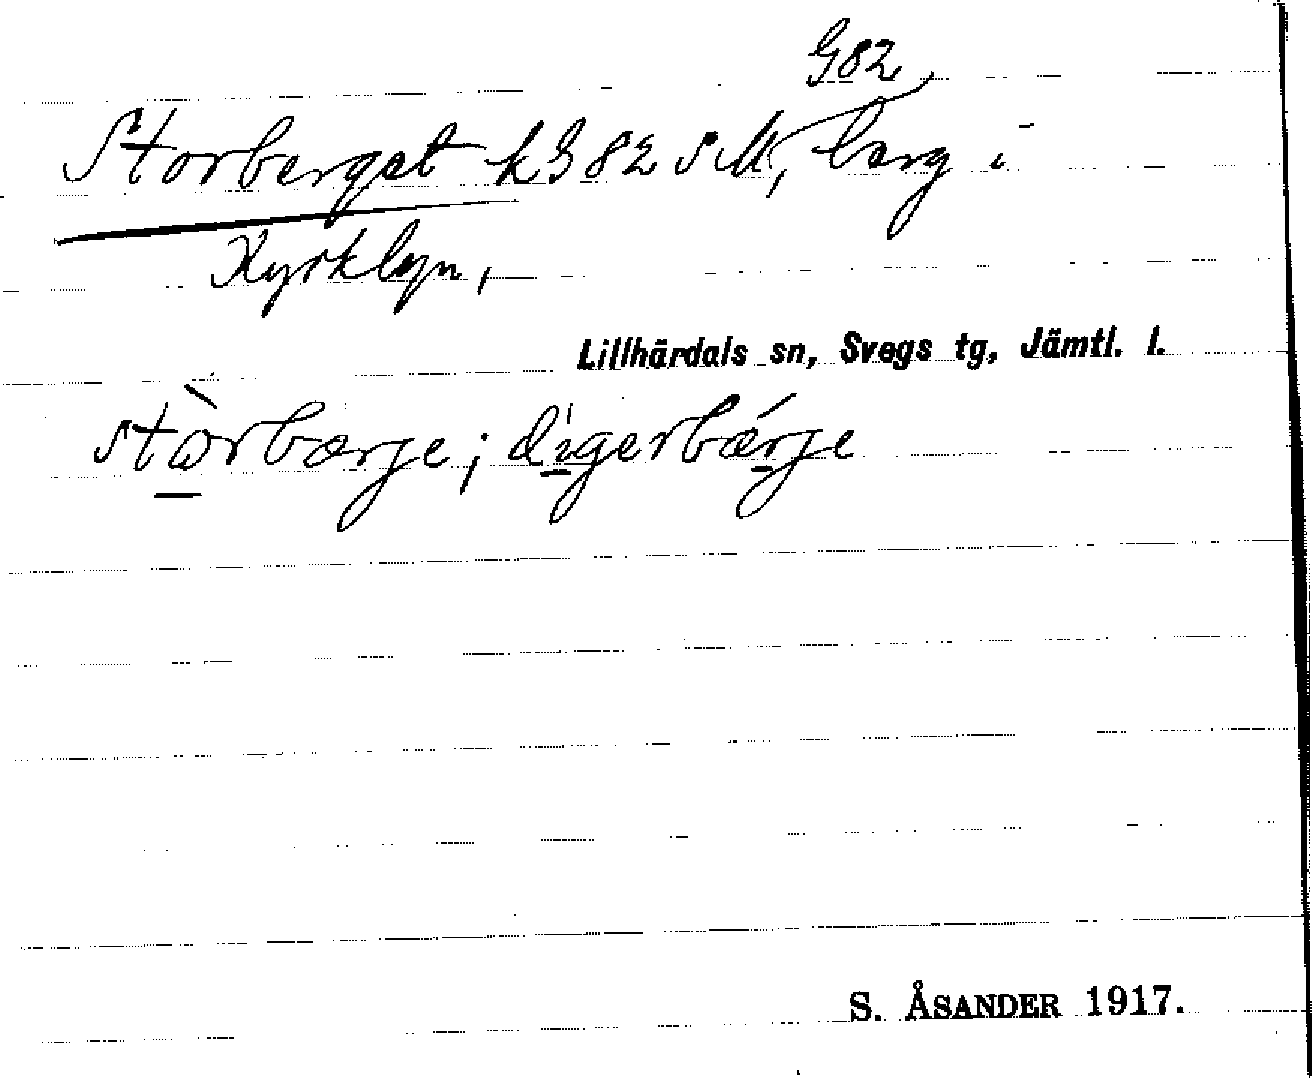 G82
Storberget k G 82 s M, berg i
Kyrkbyn,
Lillhärdals sn, Svegs tg, Jämtl. l.
stòrbærje; dígerbǽrje
S. ÅSANDER 1917.